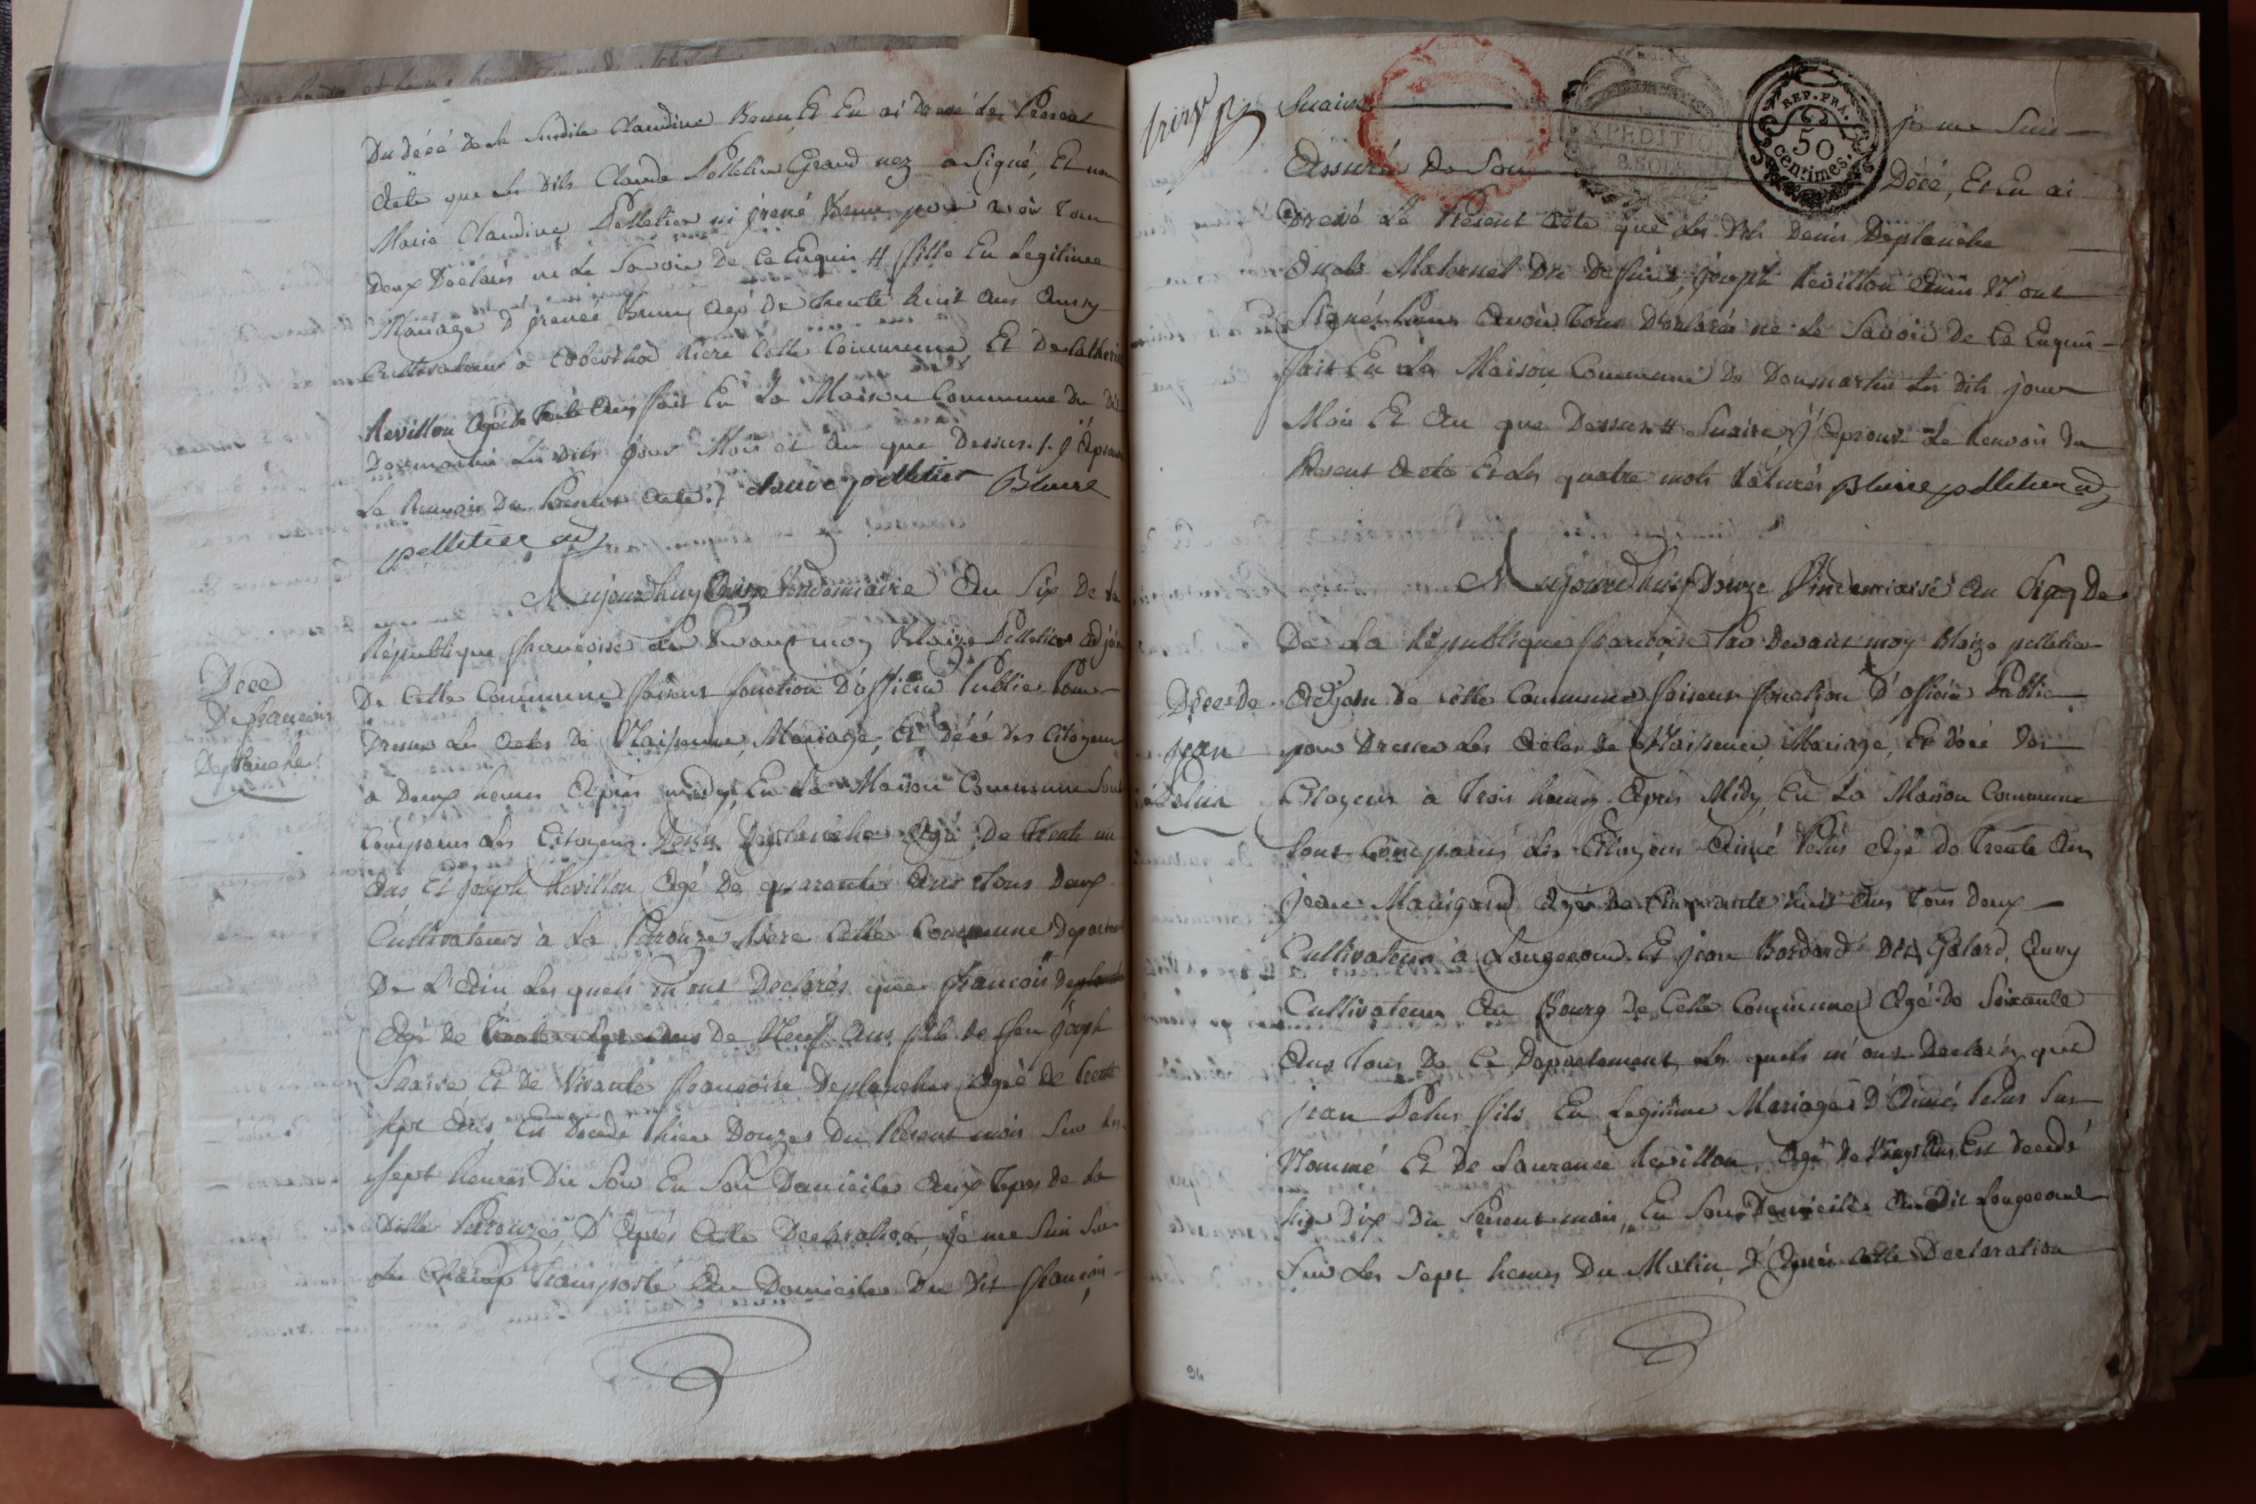 Du décé de la Susdite Claudine Brun, Et En ai Dressé Le Present
Acte que Les dits Claude Pelletier Grand nez a Signé, Et non
Marie Claudine Pelletier ni jrené Brun pour avoir Tous
Deux Déclarés ne Le Savoir De Ce Enquis # fille En Legitime
Mariage D'jrenée Brun, Agé De trente huit Ans Aussy
Cultivateur à Rière Cette Commune, Et De Catherine
Revillon Agée De Trente Ans fait En La Maison Commune du dit
Domartin Les dits jour Mois et An que Dessus ./. J'Aprouve
Le Renvoir Du Present Acte ./. claude pelletier Blaise
pelletier adj
Aujourdhuy Treize Vendemiaire An Six De La
République francoise par Devant moy Blaize Pelletier adjoin
De Cette Commune faisent fonction D'officié Public Pour
Dresser Les Actes De Naissance Mariage, Et décé des Citoyens
a Deux heures Aprés midy, En La Maison Commune Sont
Comparus Les Citoyens Denis Deplanche Agé De Trente un
Ans, Et Joseph Revillon Agé De quarante Ans Tous Deux
Cultivateurs à La Perouze Riere Cette Commune Departement
De L'Ain Les quels m'ont Declarés que francois Deplanche
Agé De Trente Sept Ans de Neuf Ans fils de feu Joseph
Suaire Et De Vivante francoise Deplanche, Agée De Trente
Sept Ans, Est Decedé hier Douze Du Present mois Sur Les
Sept heures Du Soir En Son Domicile Aux Tepes De La
Ditte Perouze, D'Aprés Cette Declaration, je me Suis Sur
Le Champ Transporté Au Domicile Du Dit francois
Décé
De francois
Deplanche
treize
Suaire je me Suis
REP. FRA.
50
centimes.
EXPEDITION
8 SOLS
Assuré De Son Décé, Et En ai
Dressé Le Present Acte que Les Dits Denis Deplanche
Oncle Maternel Du Defunt, Joseph Revillon Amis N'ont
Signés Pour Avoir Tous Déclarés ne Le Savoir De Ce Enquis
fait En La Maison Commune De Donmartin Les dits jour
Mois Et An que Dessus # Suaire J'Aprouve Le Renvoir Du
Present Acte Et Les quatre mots Raturés Blaise pelletier adj
Aujourdhuy Douze Vindemiaire An Six De
De La République francoise Par Devant moy Blaize pelletier
Adjoin de Cette Commune faisent fonction D'officié Public
pour Dresser Les Actes de Naissance, Mariage, Et décé Des
Citoyens à Trois heures Aprés Midy, En La Maison Commune
Sont Comparus Les Citoyens Aimé Pelus Agé De Trente Ans
Jean Maingard Agé De Cinquante huit Ans Tous Deux
Cultivateurs à Longecour Et jean Bordard Dit Galard, Aussy
Cultivateur Au Bourg De Cette Commune Agé De Soixante
Ans Tous De Ce Departement, Les quels m'ont Declarés que
jean Pelus fils En Legitime Mariage D'Aimé Pelus Sus
Nommé Et De Laurence Revillon Agé De Vingt Ans Est Decedé
hier Dix Du Present mois, En Son Domicile Au Dit Longecour
Sur Les Sept heures Du Matin, D'Aprés Cette Declaration
Décés De
jean
Pelus